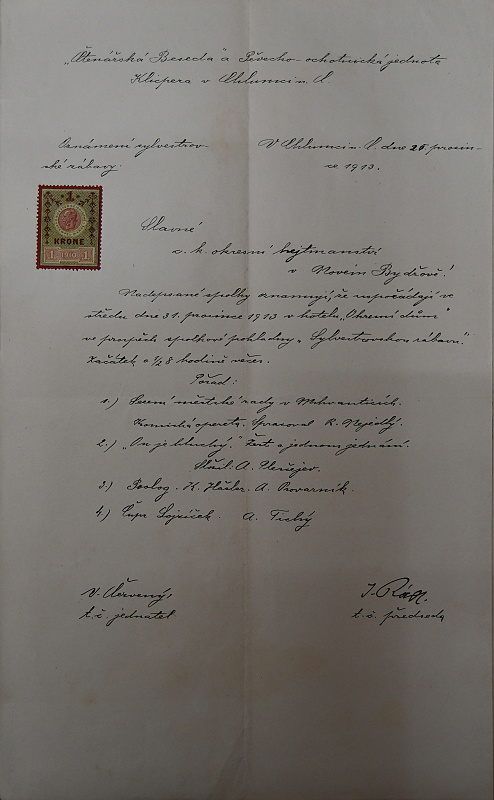 „Čtenářská Beseda" a Pěvecko-ochotnická jednota
Klicpera v Chlumci n. C.
Oznámení sylvestrov-
ské zábavy.
V Chlumci n. C. dne 26. prosin-
ce 1913.
1
KRONE
1 1910 1
Slavné
c. k. okresní hejtmanství
v Novém Bydžově!
Nadepsané spolky oznamují, že uspořádají ve
středu dne 31. prosince 1913 v hotelu „Okresní dům"
ve prospěch spolkové pokladny „Sylvestrovskou zábavu".
Začátek o ½8 hodině večer.
Pořad:
1.) Sezení městské rady v
Komická opereta. Spracoval R. Nejedlý.
2.) „On je hluchý." Žert o jednom jednání.
A.
3.) K. Hašler. A.
4.) A. Tichý
V. Červený,
t. č. jednatel
J.
t. č. předseda